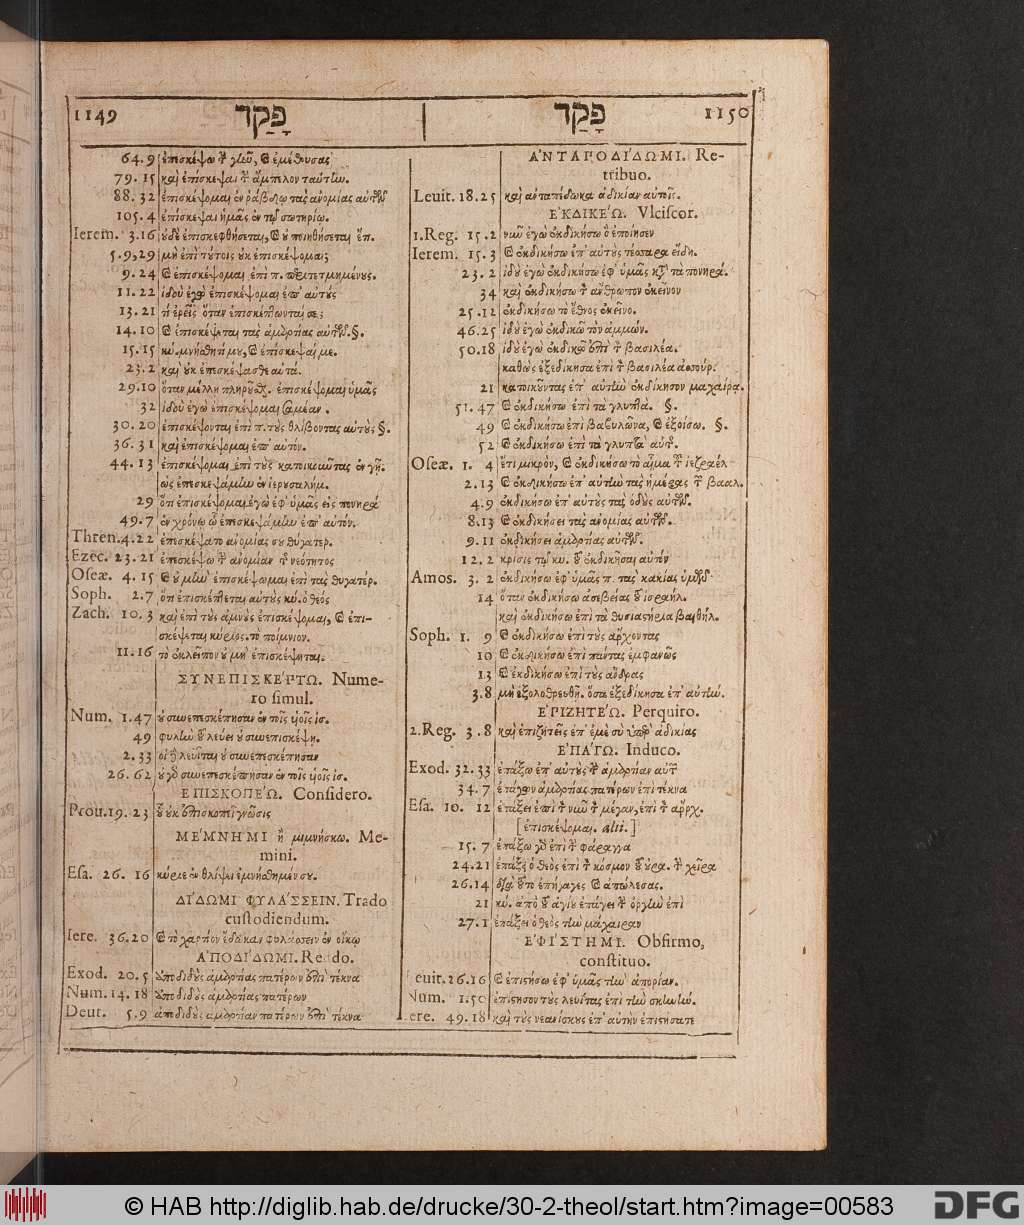 1149 פָּקַד פָּקַד 1150
64. 9 ἐπεσκέψω τ̃ γῆν, καὶ ἐμέθυσας
79. 15 καὶ ἐπίσκεψαι τ̃ ἄμπελον ταύτην.
88. 32 ἐπισκέψομαι ἐν ῥάβδῳ τὰς ἀνομίας αὐτῶν
105. 4 ἐπίσκεψαι ἡμᾶς ἐν τῷ σωτηρίῳ.
Ierem. 3. 16 οὐδὲ ἐπισκεφθήσεται, καὶ οὐ ποιηθήσεται ἔτι.
5. 9, 29 μὴ ἐπὶ τούτοις οὐκ ἐπισκέψομαι;
9. 24 καὶ ἐπισκέψομαι ἐπὶ π. περιτετμημένους.
11. 22 ἰδοὺ ἐγὼ ἐπισκέψομαι ἐπ' αὐτοὺς
13. 21 τί ἐρεῖς ὅταν ἐπισκέπτωνταί σε;
14. 10 καὶ ἐπισκέψεται τὰς ἁμαρτίας αὐτῶν. §.
15. 15 κύ. μνήσθητί μου, καὶ ἐπίσκεψαί με.
23. 2 καὶ οὐκ ἐπεσκέψασθε αὐτά.
29. 10 ὅταν μέλλῃ πληροῦσθ. ἐπισκέψομαι ὑμᾶς
32 ἰδοὺ ἐγὼ ἐπισκέψομαι σαμέαν.
30. 20 ἐπισκέψονται ἐπὶ π. τοὺς θλίβοντας αὐτοὺς §.
36. 31 καὶ ἐπισκέψομαι ἐπ' αὐτόν.
44. 13 ἐπισκέψομαι ἐπὶ τοὺς κατοικοῦντας ἐν γῇ.
ὡς ἐπεσκεψάμην ἐν ἱερουσαλήμ.
29 ὅτι ἐπισκέψομαι ἐγὼ ἐφ' ὑμᾶς εἰς πονηρά
49. 7 ἐν χρόνῳ ᾧ ἐπεσκεψάμην ἐπ' αὐτόν.
Thren. 4. 22 ἐπεσκέψατο ἀνομίας σου θύγατερ.
Ezec. 23. 21 ἐπεσκέψω τ̃ ἀνομίαν τ̃ νεότητος
Oseæ. 4. 15 καὶ οὐ μὴ ἐπισκέψωμαι ἐπὶ τὰς θυγατέρ.
Soph. 2. 7 ὅτι ἐπισκέπτεται αὐτοὺς κύ. ὁ θεός
Zach. 10. 3 καὶ ἐπὶ τοὺς ἀμνοὺς ἐπισκέψομαι, καὶ ἐπι-
σκέψεται κύριος. τὸ ποίμνιον.
11. 16 τὸ ἐκλεῖπον οὐ μὴ ἐπισκέψηται.
ΣΥΝΕΠΙΣΚΕΊΠΤΩ. Nume-
ro simul.
Num. 1. 47 οὐ συνεπεσκέπησαν ἐν τοῖς υἱοῖς ἰσ.
49 φυλὴν τοῦ λευει οὐ συνεπισκέψῃ.
2. 33 οἱ δὲ λευῖται οὐ συνεπεσκέπησαν
26. 62 οὐ γὰρ συνεπεσκέπησαν ἐν τοῖς υἱοῖς ἰσ.
ΕΠΙΣΚΟΠΕΏ. Considero.
Prou. 19. 23 οὗ οὐκ ἐπισκοπεῖ γνῶσις
ΜΕΜΝΗΜΙ ἢ μιμνήσκω. Me-
mini.
Esa. 26. 16 κύριε ἐν θλίψει ἐμνήσθημέν σου.
ΔΙΔΩΜΙ ΦΥΛΑΣΣΕΙΝ. Trado
custodiendum.
Iere. 36. 20 καὶ τὸ χαρτίον ἔδωκαν φυλάσσειν ἐν οἴκῳ
ἈΠΟΔΙΔΩΜΙ. Reddo.
Exod. 20. 5 ἀποδιδοὺς ἁμαρτίας πατέρων ἐπὶ τέκνα
Num. 14. 18 ἀποδιδοὺς ἁμαρτίας πατέρων
Deut. 5. 9 ἀποδιδοὺς ἁμαρτίαν πατέρων ἐπὶ τέκνα
ἈΝΤΑΠΟΔΙΔΩΜΙ. Re-
tribuo.
Leuit. 18. 25 καὶ ἀνταπέδωκα ἀδικίαν αὐτοῖς.
ΕΚΔΙΚΕΏ. Vlciscor.
1. Reg. 15. 2 νῦν ἐγὼ ἐκδικήσω ὃ ἐποίησεν
Ierem. 15. 3 καὶ ἐκδικήσω ἐπ' αὐτοὺς τέσσαρα εἴδη.
23. 2 ἰδοὺ ἐγὼ ἐκδικήσω ἐφ' ὑμᾶς κτ̃ τὰ πονηρά.
34 καὶ ἐκδικήσω τ̃ ἄνθρωπον ἐκεῖνον
25. 12 ἐκδικήσω τὸ ἔθνος ἐκεῖνο.
46. 25 ἰδοὺ ἐγὼ ἐκδικῶ τὸν ἀμμών.
50. 18 ἰδοὺ ἐγὼ ἐκδικῶ ἐπὶ τ̃ βασιλέα.
καθὼς ἐξεδίκησα ἐπὶ τ̃ βασιλέα ἀσσούρ.
21 κατοικοῦντας ἐπ' αὐτὴν ἐκδίκησον μαχαίρᾳ.
51. 47 καὶ ἐκδικήσω ἐπὶ τὰ γλυπτά. §.
49 καὶ ἐκδικήσω ἐπὶ βαβυλῶνα, καὶ ἐξοίσω. §.
52 καὶ ἐκδικήσω ἐπὶ τὰ γλυπτὰ αὐτ.
Oseæ. 1. 4 ἔτι μικρὸν, καὶ ἐκδικήσω τὸ αἷμα τ̃ ἰεζραέλ
2. 13 καὶ ἐκδικήσω ἐπ' αὐτὴν τὰς ἡμέρας τ̃ βααλ.
4. 9 ἐκδικήσω ἐπ' αὐτοὺς τὰς ὁδοὺς αὐτῶν.
8. 13 καὶ ἐκδικήσει τὰς ἀνομίας αὐτῶν.
9. 11 ἐκδικήσει ἁμαρτίας αὐτῶν.
12. 2 κρίσις τῷ κυ. τοῦ ἐκδικῆσαι αὐτόν
Amos. 3. 2 ἐκδικήσω ἐφ' ὑμᾶς π. τὰς κακίας ὑμῶν
14 ὅταν ἐκδικήσω ἀσεβείας τοῦ ἰσραήλ.
καὶ ἐκδικήσω ἐπὶ τὰ θυσιαστήρια βαιθήλ.
Soph. 1. 9 καὶ ἐκδικήσω ἐπὶ τοὺς ἄρχοντας
10 καὶ ἐκδικήσω ἐπὶ πάντας ἐμφανῶς
13 καὶ ἐκδικήσω ἐπὶ τοὺς ἄνδρας
3. 8 μὴ ἐξολοθρευθῇ. ὅσα ἐξεδίκησα ἐπ' αὐτήν.
ΕΠΙΖΗΤΕΏ. Perquiro.
2. Reg. 3. 8 καὶ ἐπιζητεῖς ἐπ' ἐμὲ σὺ ὑπὲρ ἀδικίας
ἘΠΑΓΩ. Induco.
Exod. 32. 33 ἐπάξω ἐπ' αὐτοὺς τ̃ ἁμαρτίαν αὐτ
34. 7 ἐπάγων ἁμαρτίας πατέρων ἐπὶ τέκνα
Esa. 10. 12 ἐπάξει ἐπὶ τ̃ νοῦν τ̃ μέγαν, ἐπὶ τ̃ ἄρχ.
[ἐπισκέψομαι. alii.]
15. 7 ἐπάξω γὰρ ἐπὶ τ̃ φάραγγα
24. 21 ἐπάξει ὁ θεὸς ἐπὶ τ̃ κόσμον τοῦ οὐρα. τ̃ χεῖρα
26. 14 διὰ τοῦτο ἐπήγαγες καὶ ἀπώλεσας.
21 κύ. ἀπὸ τοῦ ἁγίου ἐπάγει τ̃ ὀργὴν ἐπὶ
27. 1 ἐπάξει ὁ θεὸς τὴν μάχαιραν
ἘΦΙΣΤΗΜΙ. Obfirmo,
constituo.
euit. 26. 16 καὶ ἐπιστήσω ἐφ' ὑμᾶς τὴν ἀπορίαν.
Num. 1. 50 ἐπίστησον τοὺς λευίτας ἐπὶ τὴν σκηνήν.
ere. 49. 18 καὶ τοὺς νεανίσκους ἐπ' αὐτὴν ἐπιστήσατε
© HAB http://diglib.hab.de/drucke/30-2-theol/start.htm?image=00583 DFG